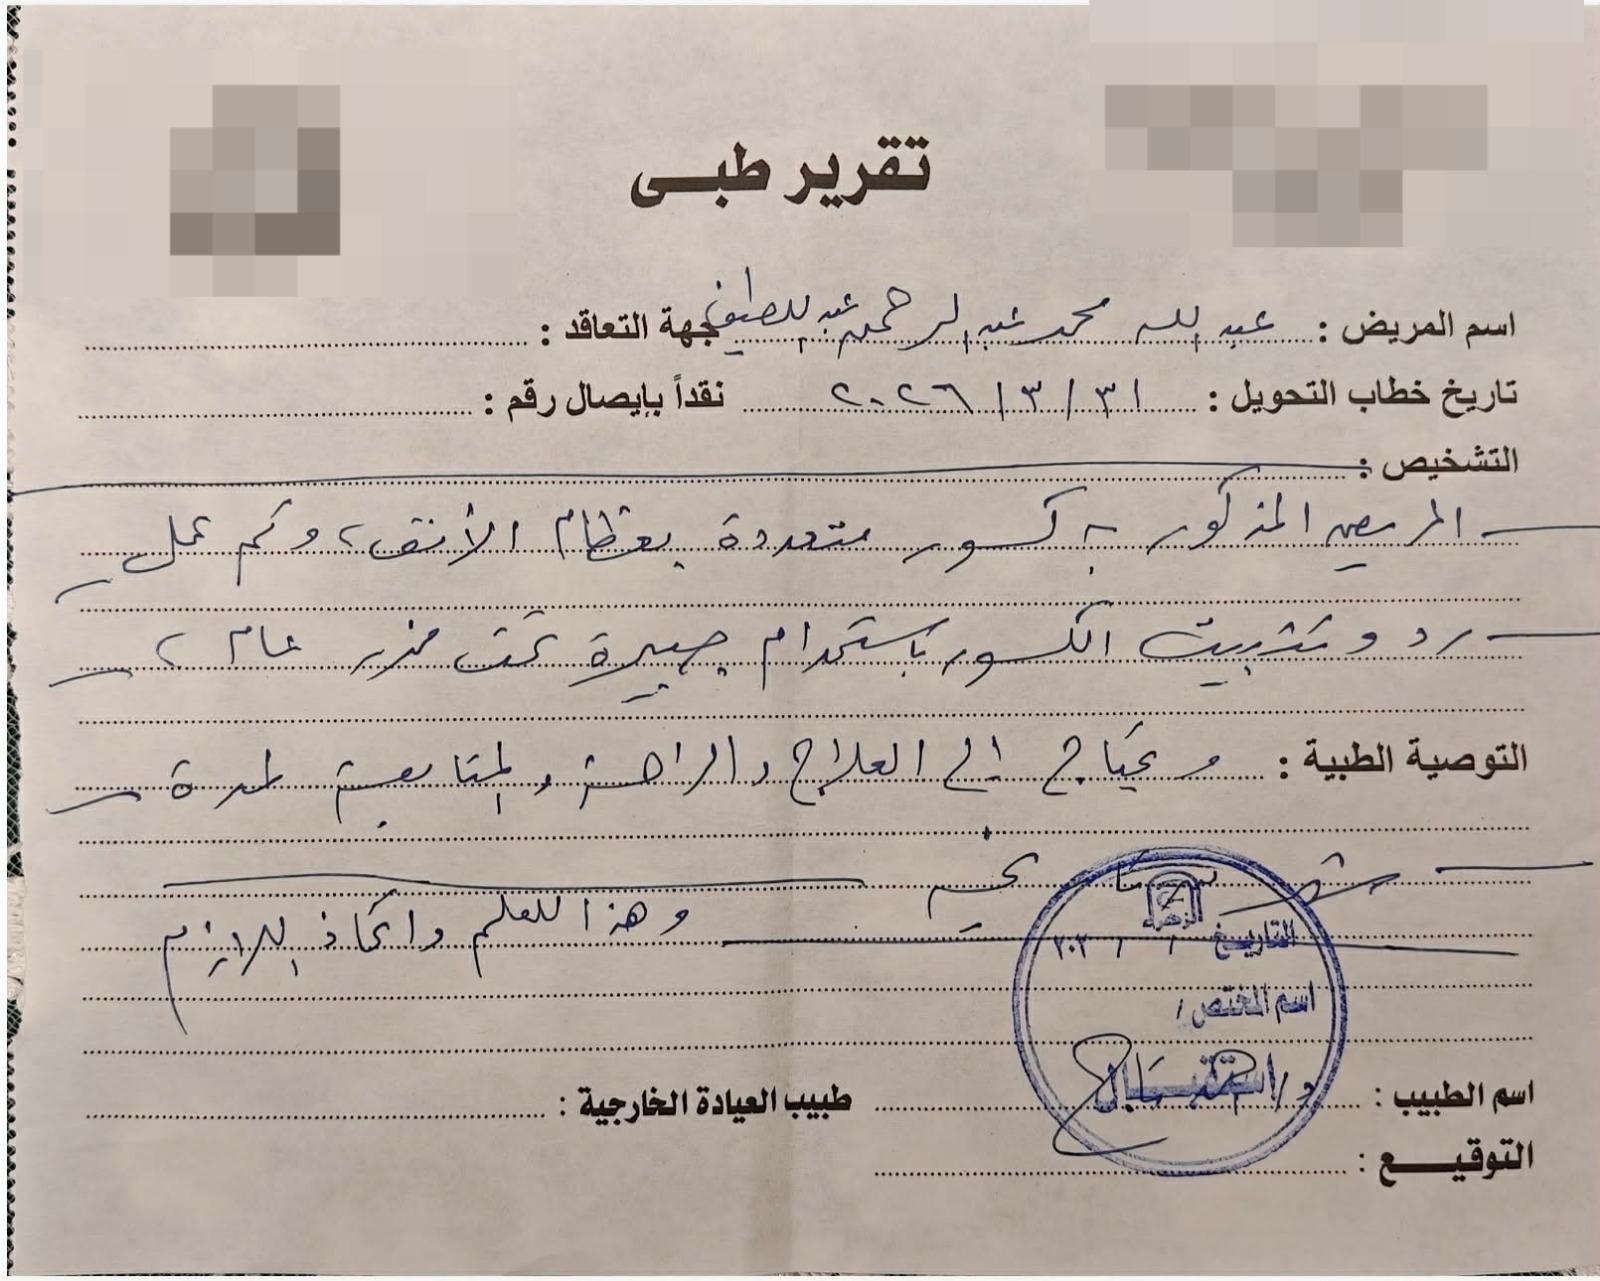 تقرير طبى
اسم المريض : عبد الله محمد عبد الرحمن عبد اللطيف جهة التعاقد :
تاريخ خطاب التحويل : ٣١ / ٣ / ٢٠٢٦ نقداً بإيصال رقم :
التشخيص :
المريض المذكور به كسور متعددة بعظام الأنف، وتم عمل
رد وتثبيت الكسور باستخدام جبيرة تحت مخدر عام،
التوصية الطبية : ويحتاج إلى العلاج والراحة والمتابعة لمدة
شهر
وهذا للعلم واتخاذ اللازم
التاريخ / / ٢٠٢
اسم المختص /
استقبال
اسم الطبيب : د/ طبيب العيادة الخارجية :
التوقيع :